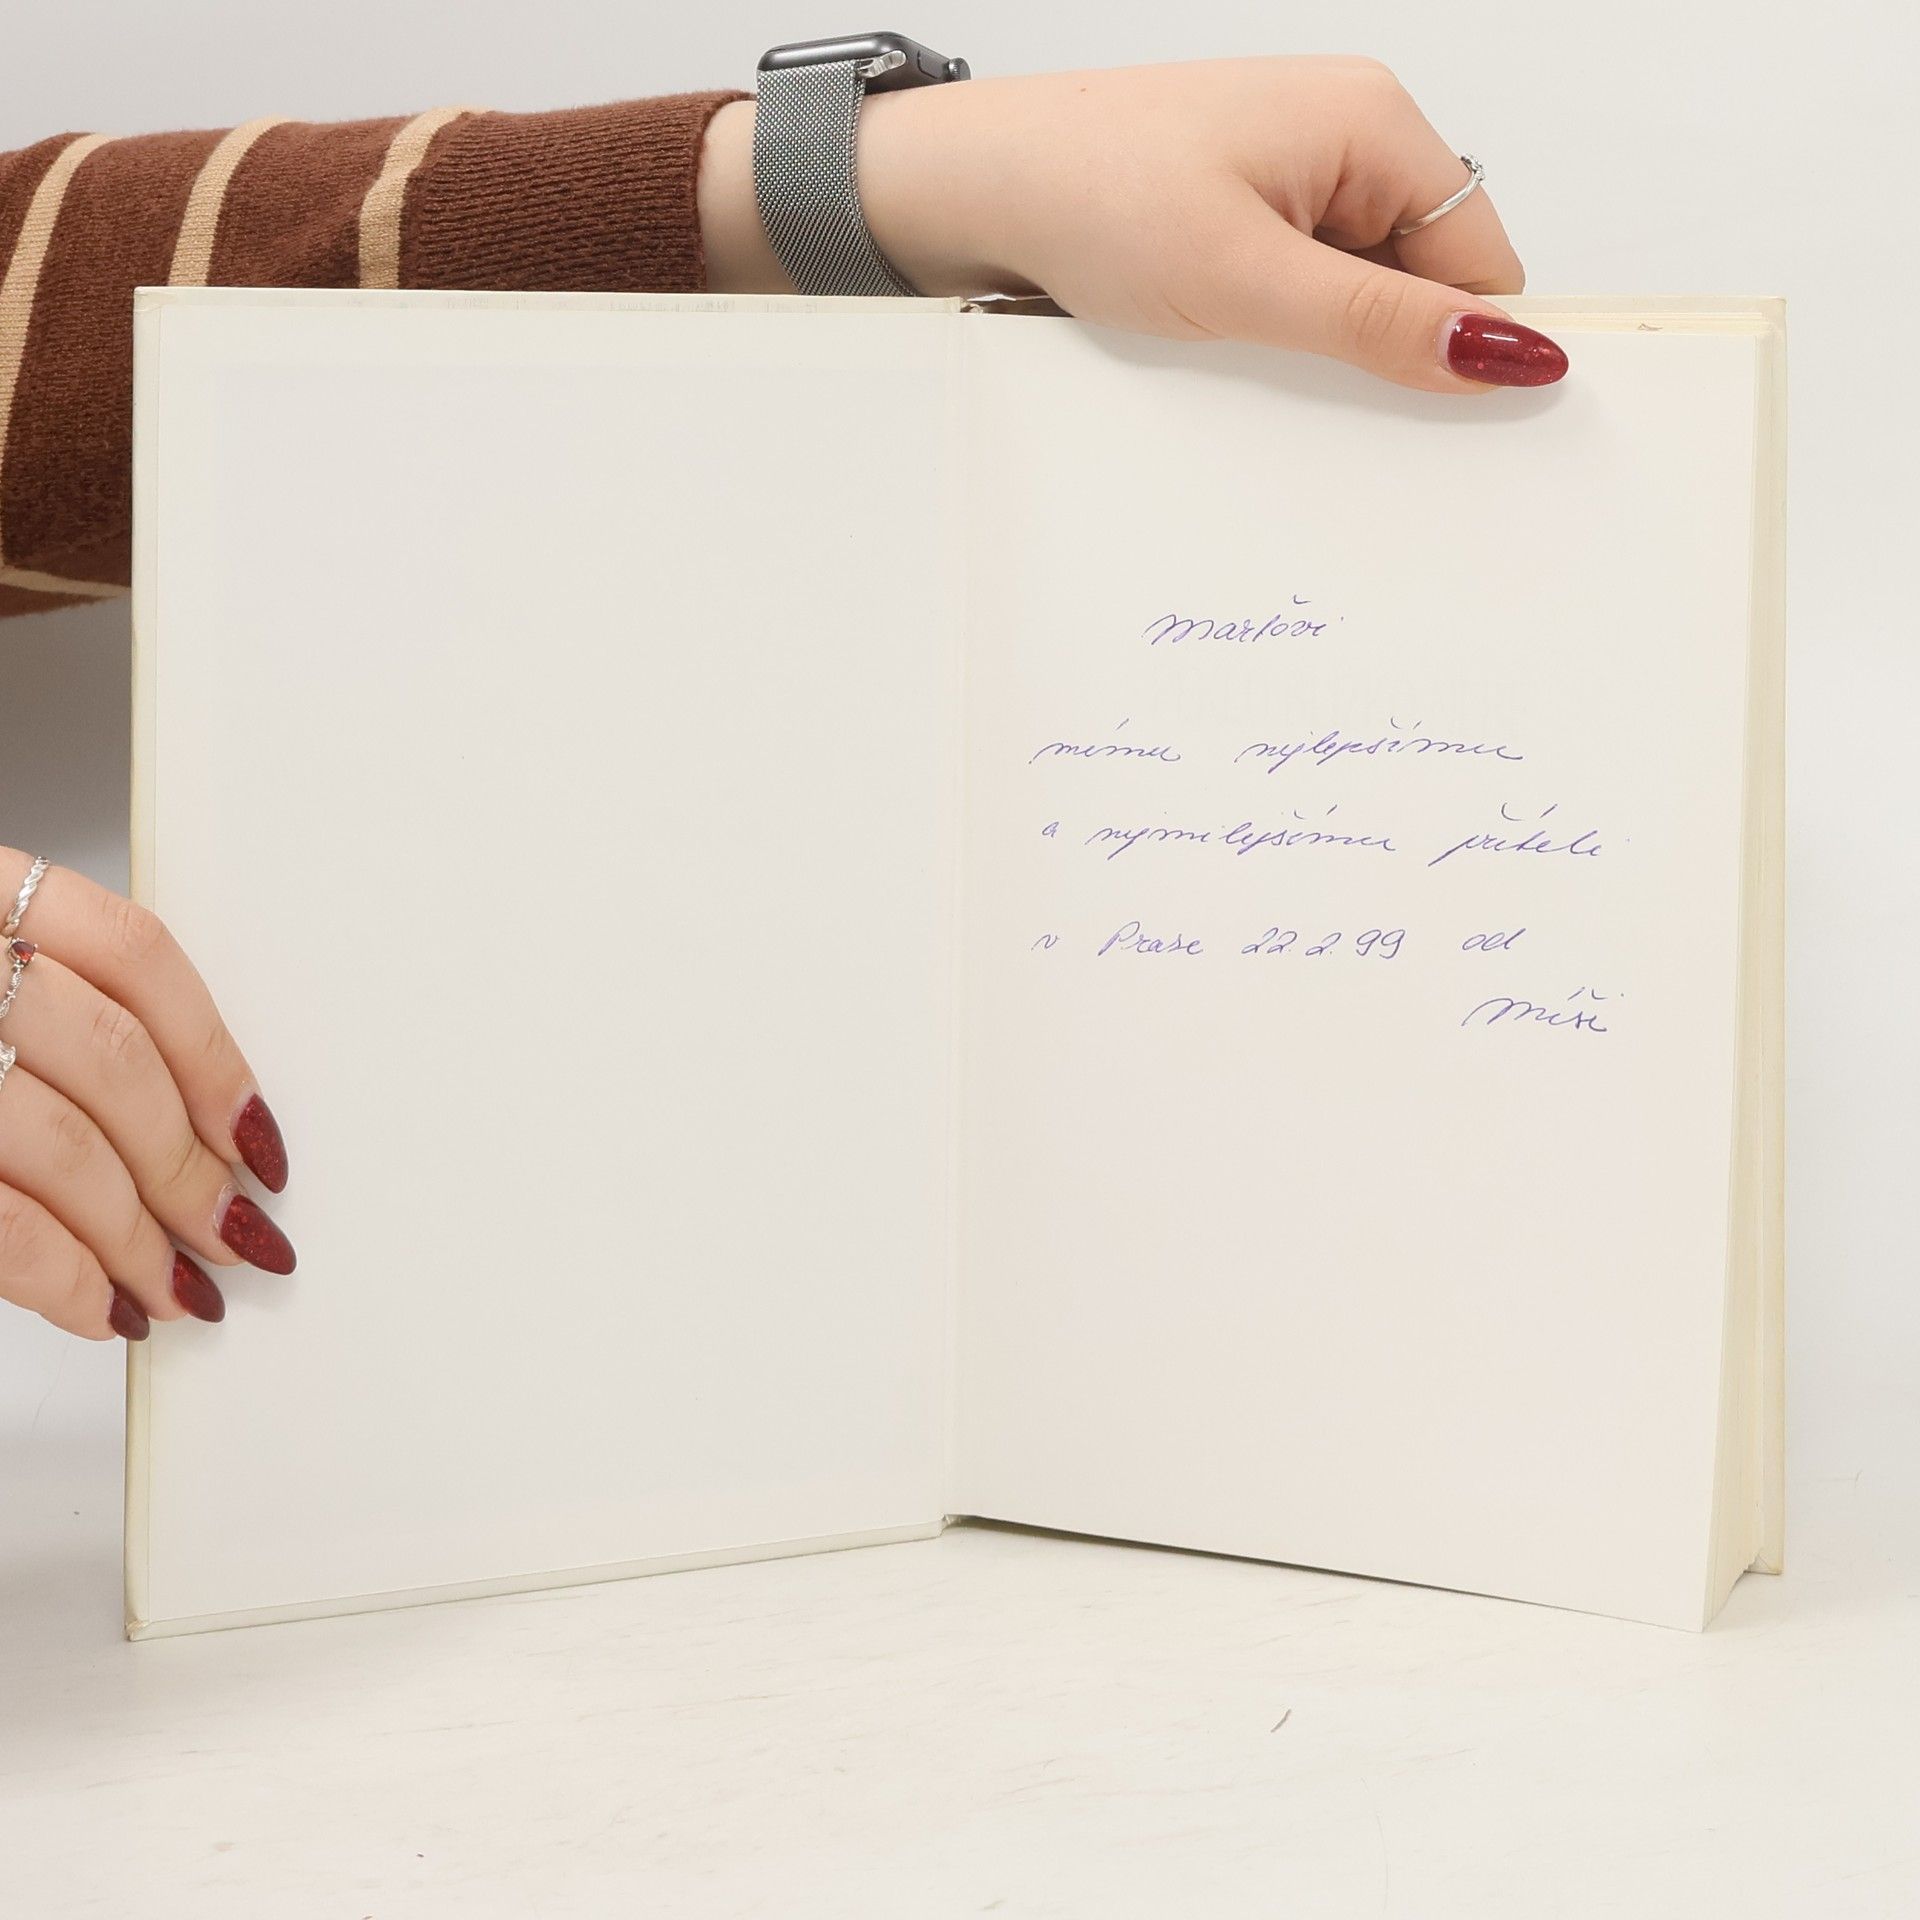 Marťovi
mému nejlepšímu
a nejmilejšímu příteli
v Praze 22. 2. 99 od
Míši